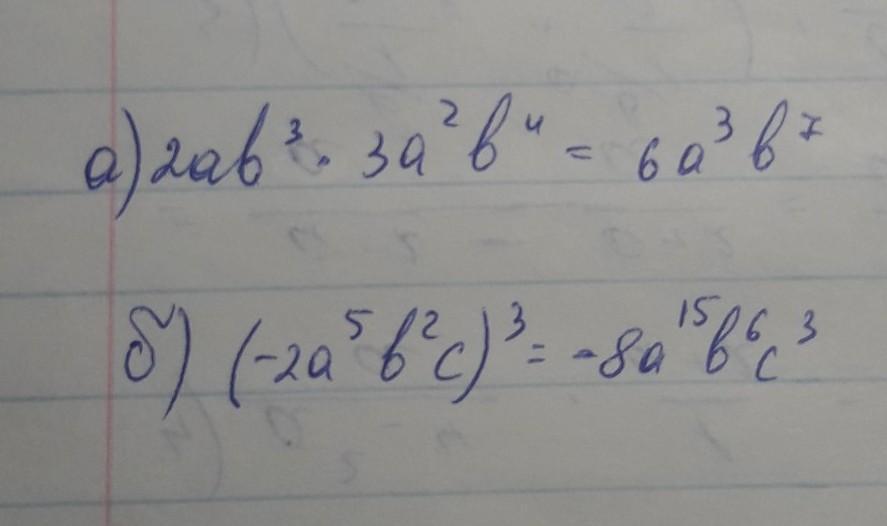 а) 2ab³ · 3a²b⁴ = 6a³b⁷
б) (-2a⁵b²c)³ = -8a¹⁵b⁶c³